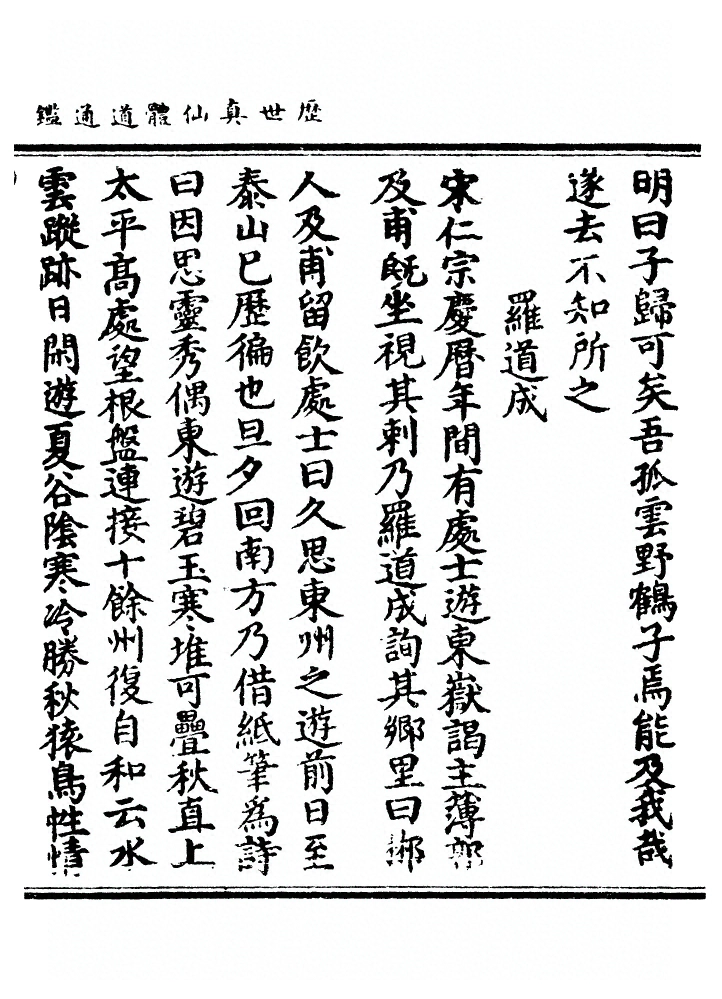 歷世真仙體道通鑑
明日子歸可矣吾孤雲野鶴子焉能及我哉
遂去不知所之
羅道成
宋仁宗慶曆年間有處士遊東嶽謁主薄郭
及甫既坐視其刺乃羅道成詢其鄉里曰郴
人及甫留飲處士曰久思東州之遊前日至
泰山已歷徧也旦夕回南方乃借紙筆為詩
曰因思靈秀偶東遊碧玉寒堆可疊秋直上
太平高處望根盤連接十餘州復自和云水
雲蹤跡日閑遊夏谷陰寒冷勝秋猿鳥性情